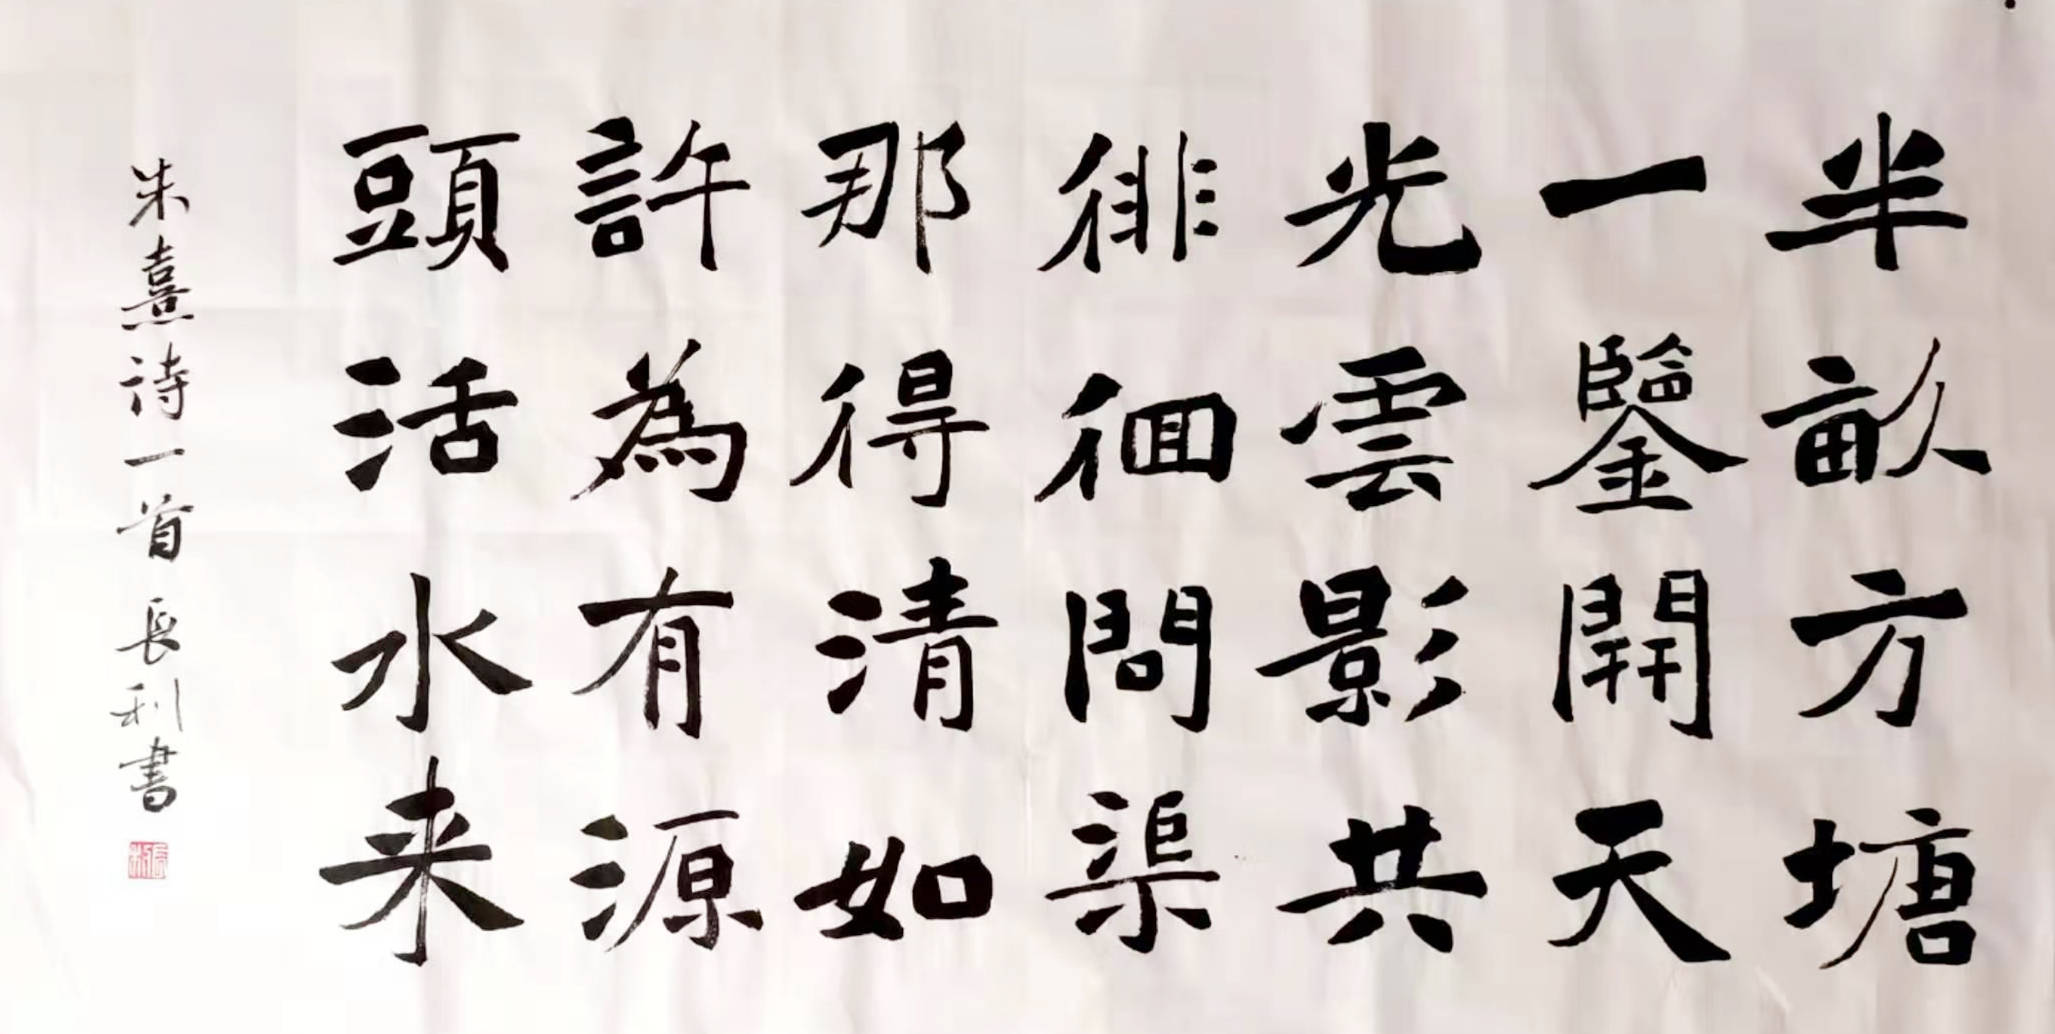 半畝方塘
一鑒開天
光雲影共
徘徊問渠
那得清如
許為有源
頭活水来
朱熹诗一首 長利書